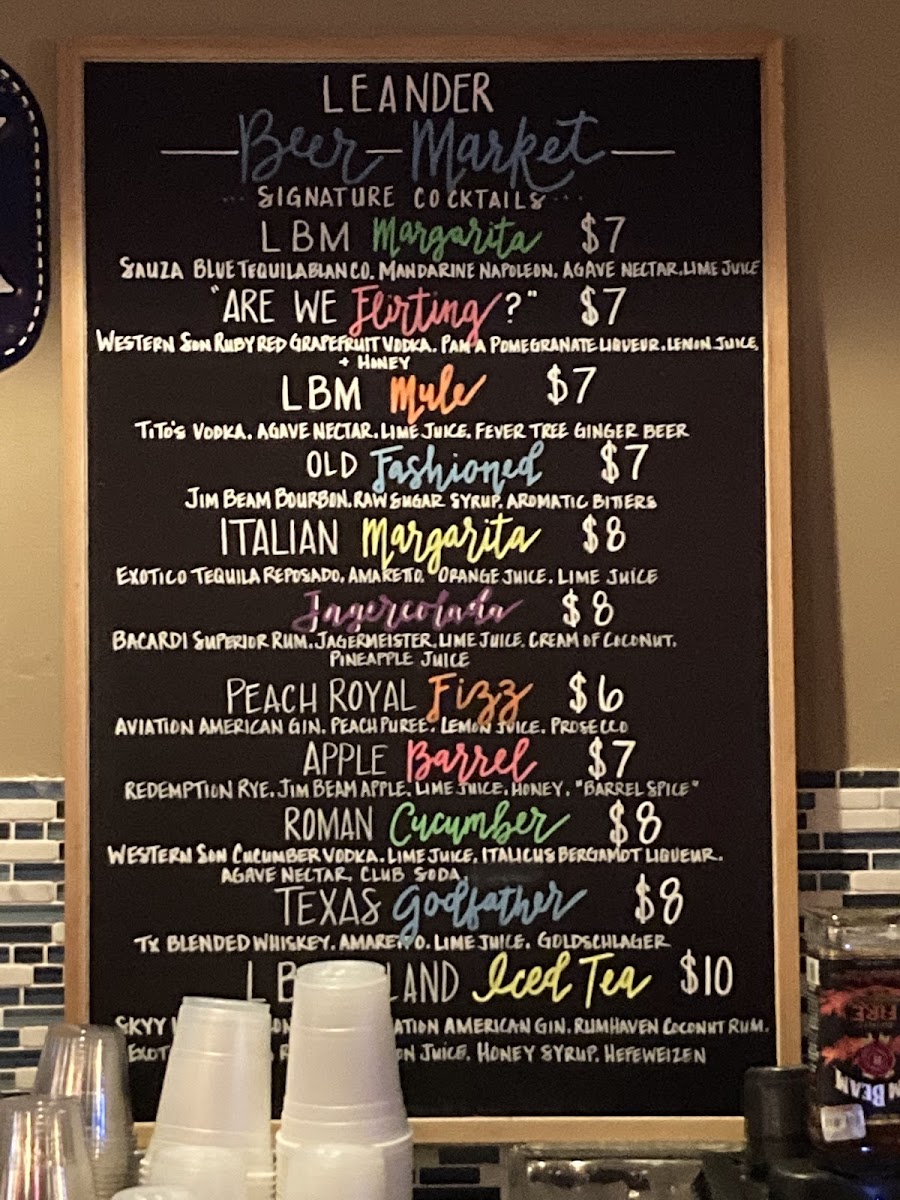 LEANDER
Beer Market
SIGNATURE COCKTAILS
LBM Margarita $7
SAUZA BLUE TEQUILA BLANCO. MANDARINE NAPOLEON. AGAVE NECTAR. LIME JUICE
"ARE WE Flirting?" $7
WESTERN SON RUBY RED GRAPEFRUIT VODKA. PAMA POMEGRANATE LIQUEUR. LEMON JUICE,
+ HONEY
LBM Mule $7
TITO'S VODKA. AGAVE NECTAR. LIME JUICE. FEVER TREE GINGER BEER
OLD Fashioned $7
JIM BEAM BOURBON. RAW SUGAR SYRUP. AROMATIC BITTERS
ITALIAN Margarita $8
EXOTICO TEQUILA REPOSADO. AMARETTO. ORANGE JUICE. LIME JUICE
Jagercolada $8
BACARDI SUPERIOR RUM. JAGERMEISTER. LIME JUICE. CREAM OF COCONUT.
PINEAPPLE JUICE
PEACH ROYAL Fizz $6
AVIATION AMERICAN GIN. PEACH PUREE. LEMON JUICE. PROSECCO
APPLE Barrel $7
REDEMPTION RYE. JIM BEAM APPLE. LIME JUICE. HONEY. "BARREL SPICE"
ROMAN Cucumber $8
WESTERN SON CUCUMBER VODKA. LIME JUICE. ITALICUS BERGAMOT LIQUEUR.
AGAVE NECTAR. CLUB SODA.
TEXAS Godfather $8
TX BLENDED WHISKEY. AMARETTO. LIME JUICE. GOLDSCHLAGER
LB LAND Iced Tea $10
SKYY ATION AMERICAN GIN. RUMHAVEN COCONUT RUM.
EXOT ON JUICE. HONEY SYRUP. HEFEWEIZEN
FIRE
BEAM